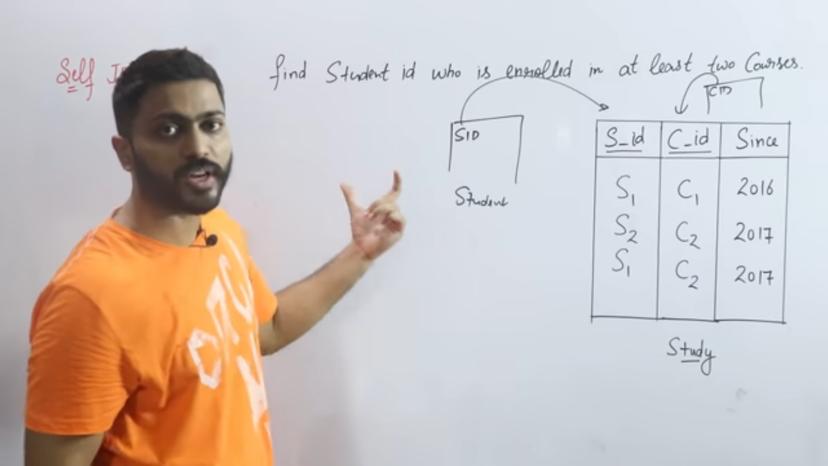 Self
find Student id who is enrolled in at least two Courses.
CID
SID
Student
S_id C_id Since
S1 C1 2016
S2 C2 2017
S1 C2 2017
Study